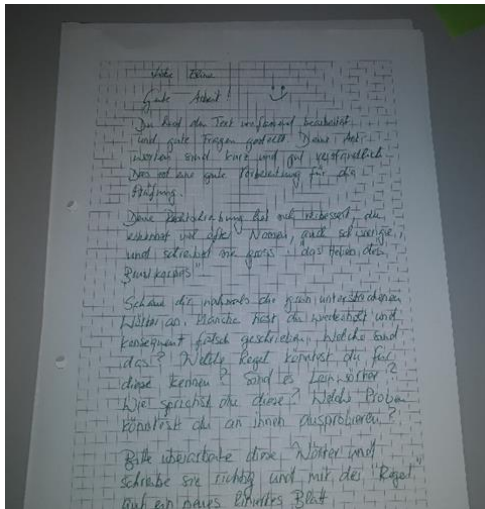 Liebe
Gute Arbeit!
Du hast den Text umfassend bearbeitet
und gute Fragen gestellt. Deine Ant-
worten sind kurz und gut verständlich.
Das ist eine gute Vorbereitung für die
Prüfung.
Deine Rechtschreibung hat sich verbessert, du
erkennst viel öfter Nomen, auch schwierige,
und schreibst sie gross: "das Heben des
Brustkorbes"
Schaue dir nochmals die grün unterstrichenen
Wörter an. Manche hast du wiederholt und
konsequent falsch geschrieben. Welche sind
das? Welche Regel könntest du für
diese kennen? Sind es Lernwörter?
Wie sprichst du diese? Welche Proben
könntest du an ihnen ausprobieren?
Bitte überarbeite diese Wörter und
schreibe sie richtig und mit der "Regel"
auf ein neues liniertes Blatt